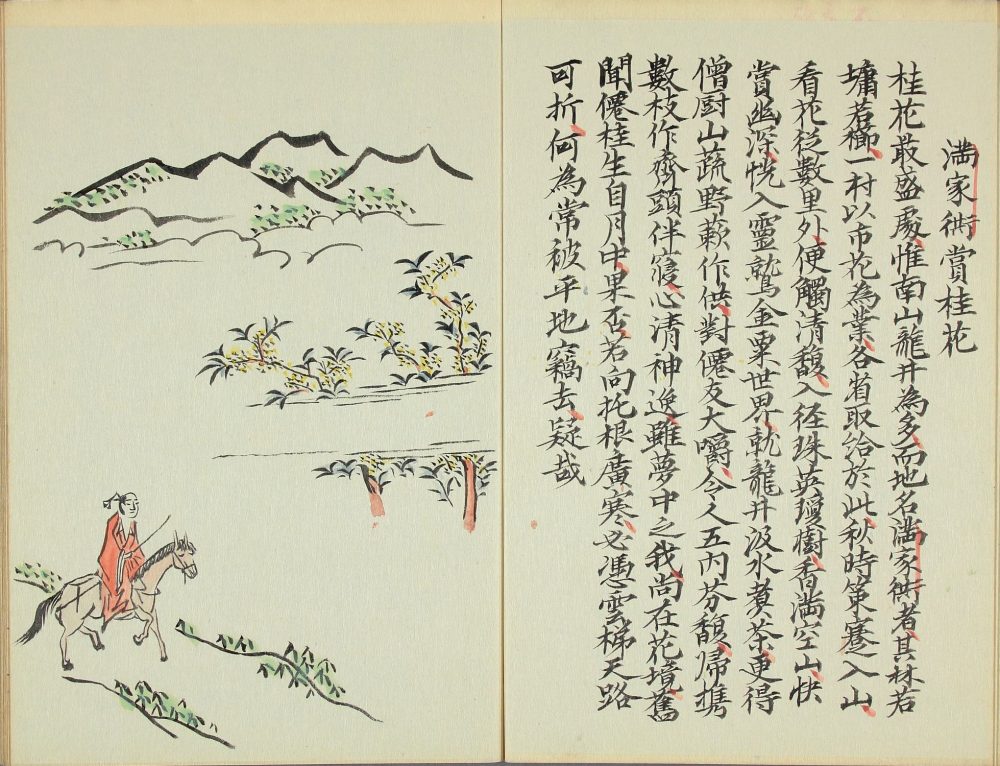 満家衖賞桂花
桂花最盛處惟南山龍井為多而地名満家衖者其林若
墉若櫛一村以市花為業各省取給於此秋時策蹇入山
看花從數里外便觸清馥入径珠英瓊樹香満空山快
賞幽深恍入靈鷲金粟世界就龍井汲水煮茶更得
僧厨山蔬野蔌作供對僊友大嚼令人五内芬馥歸携
數枝作齋頭伴寢心清神逸雖夢中之我尚在花境舊
聞僊桂生自月中果否若向托根廣寒必憑雲梯天路
可折何為常被平地竊去疑哉